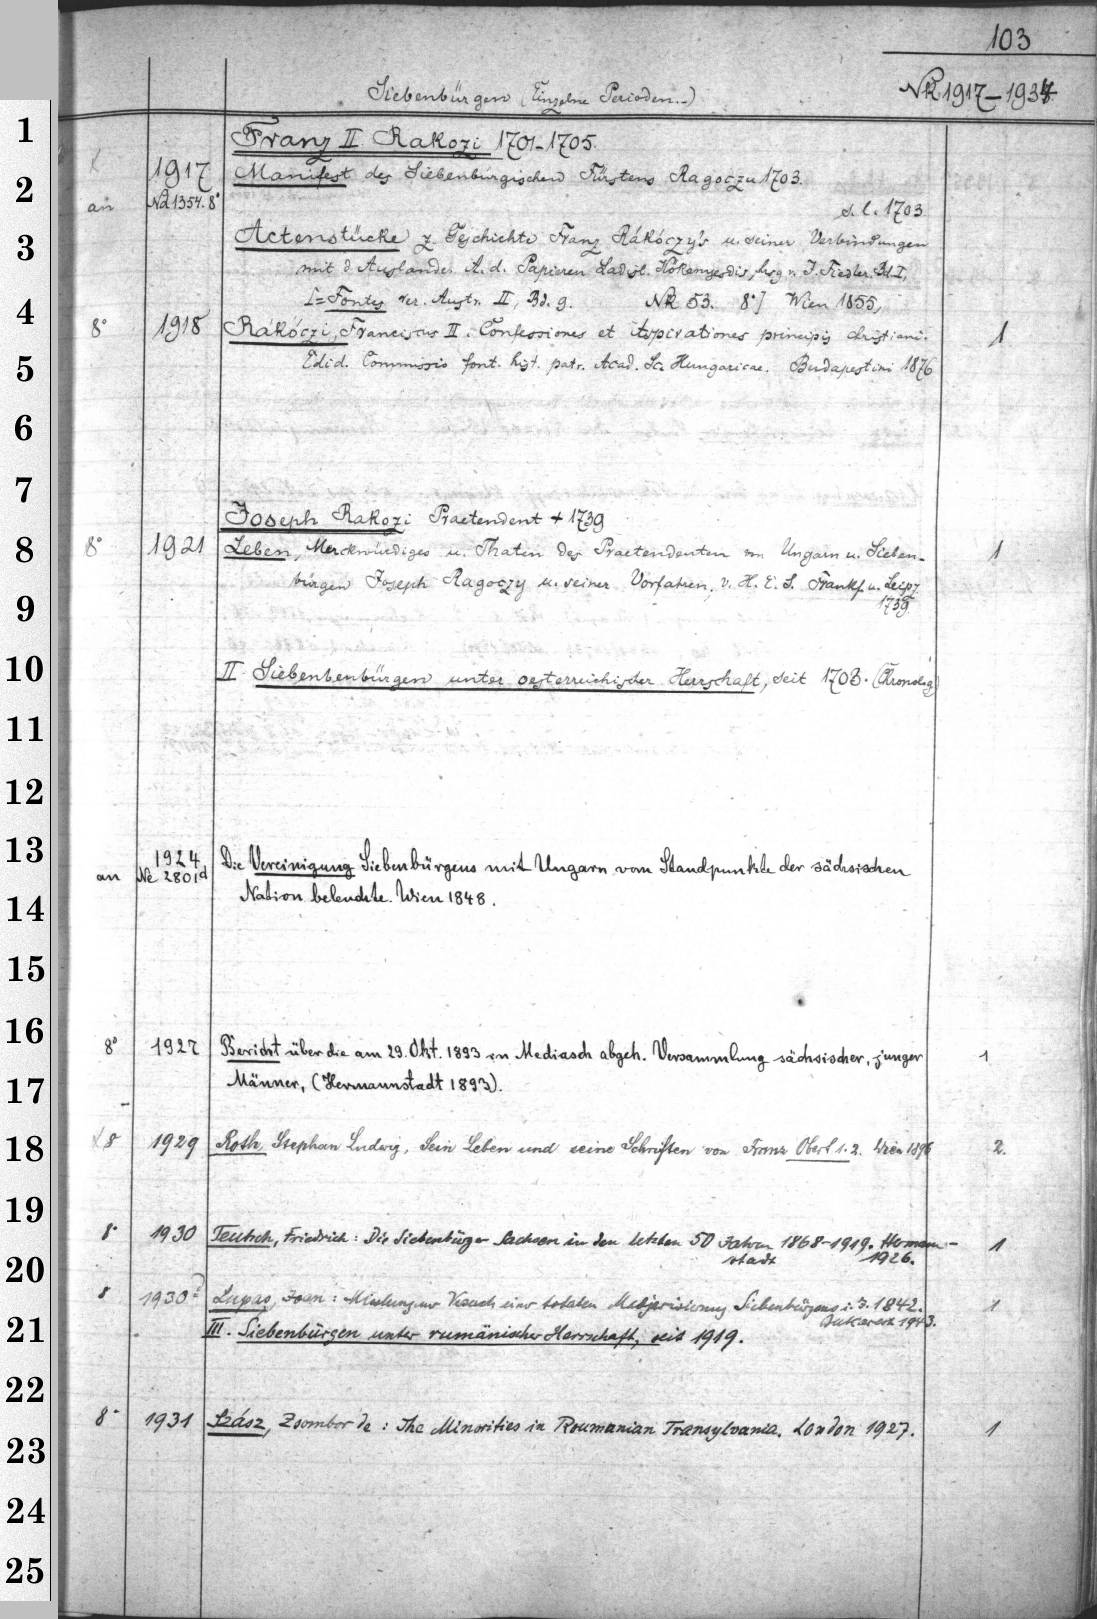 103
Siebenbürgen (Einzelne Perioden..) Nk 1917–1934
1 Franz II Rakozi 1701-1705.
1917 Manifest des Siebenbürgischen Fürstens Ragoczu 1703.
2 an Nd 1354. 8° s. l. 1703
3 Actenstücke z. Geschichte Franz Rákóczy's u. seiner Verbindungen
mit d. Auslande. A. d. Papieren Ladisl. Kökenyesdis, hrsg v. J. Fiedler. Bd. I,
4 [= Fontes rer. Austr. II, Bd. 9. Nk 53. 8°] Wien 1855,
8° 1918 Rákóczi, Franciscus II. Confessiones et aspirationes principis christiani. 1
5 Edid. Commissio font. hist. patr. Acad. Sc. Hungaricae. Budapestini 1876
6
7
Joseph Rakozi Praetendent + 1739
8 8° 1921 Leben, Merckwürdiges u. Thaten des Praetendenten von Ungarn u. Sieben- 1
bürgen Joseph Ragoczy u. seiner Vorfahren, v. H. E. S. Frankf. u. Leipz.
9 1739.
10 II Siebenbenbürgen unter oesterreichischer Herrschaft, seit 1703. (Chronolog)
11
12
13 1924 Die Vereinigung Siebenbürgens mit Ungarn vom Standpunkte der sächsischen
an Ne 2801d
14 Nation beleuchte. Wien 1848.
15
16 8° 1927 Bericht über die am 29. Okt. 1893 in Mediasch abgeh. Versammlung sächsischer, junger 1
17 Männer, (Hermannstadt 1893).
18 8 1929 Roth, Stephan Ludwig, Sein Leben und seine Schriften von Franz Obert 1. 2. Wien 1896 2.
19
8° 1930 Teutsch, Friedrich: Die Siebenbürger Sachsen in den letzten 50 Jahren 1868–1919. Hermann- 1
20 stadt 1926.
8 1930a Lupas, Joan: Misslungener Versuch einer totalen Madjarisierung Siebenbürgens i. J. 1842. 1
Bukarest 1943.
21 III. Siebenbürgen unter rumänischer Herrschaft, seit 1919.
22
8° 1931 Szász, Zsombor de: The Minorities in Roumanian Transylvania. London 1927. 1
23
24
25